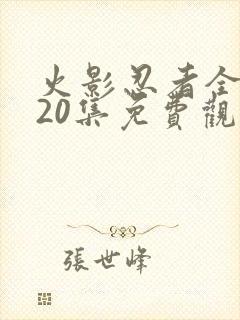 火影忍者全
20集免費觀
張世峰